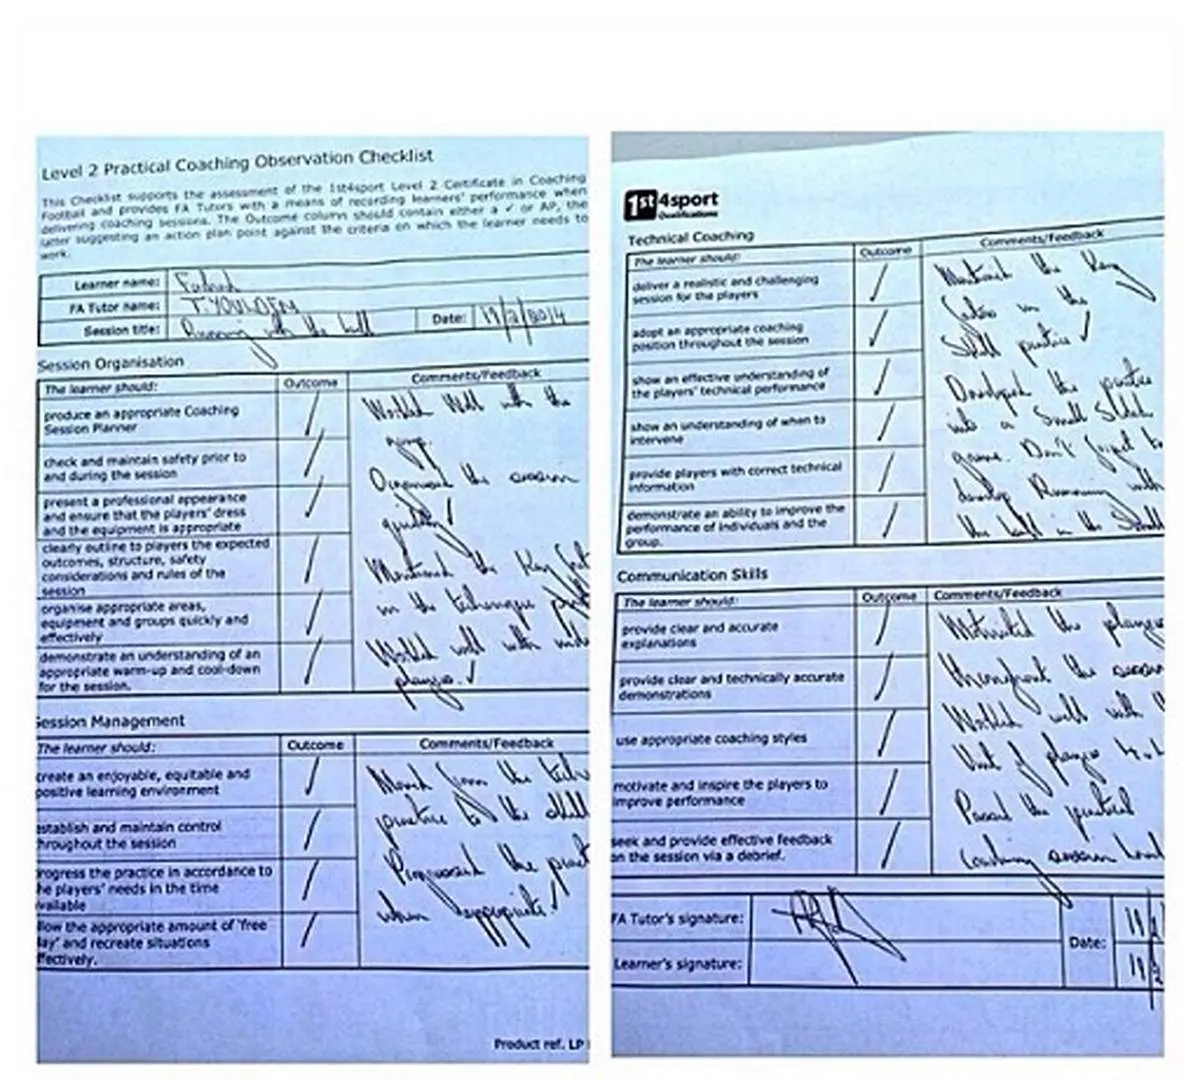 Level 2 Practical Coaching Observation Checklist
This Checklist supports the assessment of the 1st4sport Level 2 Certificate in Coaching
Football and provides FA Tutors with a means of recording learners' performance when
delivering coaching sessions. The Outcome column should contain either a ✓ or AP, the
latter suggesting an action plan point against the criteria on which the learner needs to
work.
Learner name:
FA Tutor name:
Session title: Running with the ball Date:
Session Organisation
The learner should: Outcome Comments/Feedback
produce an appropriate Coaching
Session Planner
check and maintain safety prior to
and during the session
present a professional appearance
and ensure that the players' dress
and the equipment is appropriate
clearly outline to players the expected
outcomes, structure, safety
considerations and rules of the
session
organise appropriate areas,
equipment and groups quickly and
effectively
demonstrate an understanding of an
appropriate warm-up and cool-down
for the session.
Worked well with the
group.
Organised the session
quickly ✓
Mentioned the Key
in the technique
Worked well with
players. ✓
Session Management
The learner should: Outcome Comments/Feedback
create an enjoyable, equitable and
positive learning environment
establish and maintain control
throughout the session
progress the practice in accordance to
the players' needs in the time
available
allow the appropriate amount of 'free
play' and recreate situations
effectively.
Moved from the
practice to the skill
Progressed the
when appropriate. ✓
Product ref. LP
1st4sport
Qualifications
Technical Coaching
The learner should: Outcome Comments/Feedback
deliver a realistic and challenging
session for the players
adopt an appropriate coaching
position throughout the session
show an effective understanding of
the players' technical performance
show an understanding of when to
intervene
provide players with correct technical
information
demonstrate an ability to improve the
performance of individuals and the
group.
Mentioned the Key
in the
Skill practice ✓
Developed the practice
into a Small Sided
game. Don't forget to
develop Running with
the ball in the Small
Communication Skills
The learner should: Outcome Comments/Feedback
provide clear and accurate
explanations
provide clear and technically accurate
demonstrations
use appropriate coaching styles
motivate and inspire the players to
improve performance
seek and provide effective feedback
on the session via a debrief.
Motivated the players
throughout the session
Worked well with
of players
Passed the practical
Coaching session
FA Tutor's signature:
Learner's signature:
Date: